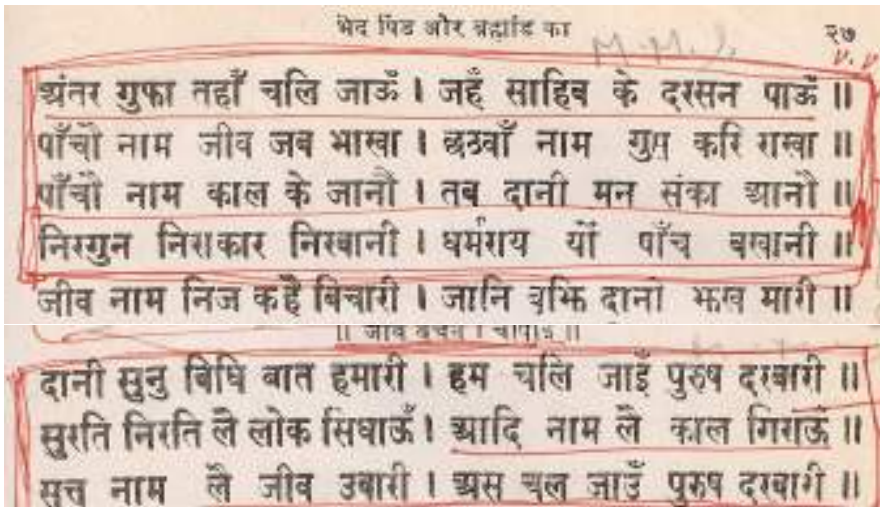 भेद पिंड और ब्रह्मांड का
२७
M.M.J.
v. v
अंतर गुफा तहाँ चलि जाऊँ । जहँ साहिब के दरसन पाऊँ ॥
पाँचौ नाम जीव जब भाखा । छठवाँ नाम गुप्त करि राखा ॥
पाँचौ नाम काल के जानौ । तब दानी मन संका आनौ ॥
निरगुन निराकार निरबानी । धर्मराय यों पाँच बखानी ॥
जीव नाम निज कहै बिचारी । जानि बूझि दानो झख मारी ॥
॥ जीव बचन । चौपाई ॥
दानी सुनु बिधि बात हमारी । हम चलि जाइँ पुरुष दरबारी ॥
सुरति निरति लै लोक सिधाऊँ । आदि नाम लै काल गिराऊँ ॥
सत्त नाम लै जीव उबारी । अस चल जाउँ पुरुष दरबारी ॥